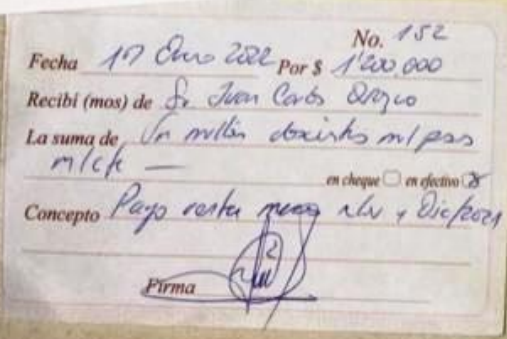 No. 152
Fecha 17 Enero 2022 Por $ 1'200,000
Recibí (mos) de Sr Juan Carlos Orozco
La suma de Un millón doscientos mil pesos
m/cte —
en cheque en efectivo
Concepto Pago renta meses nov y Dic/2021
Firma